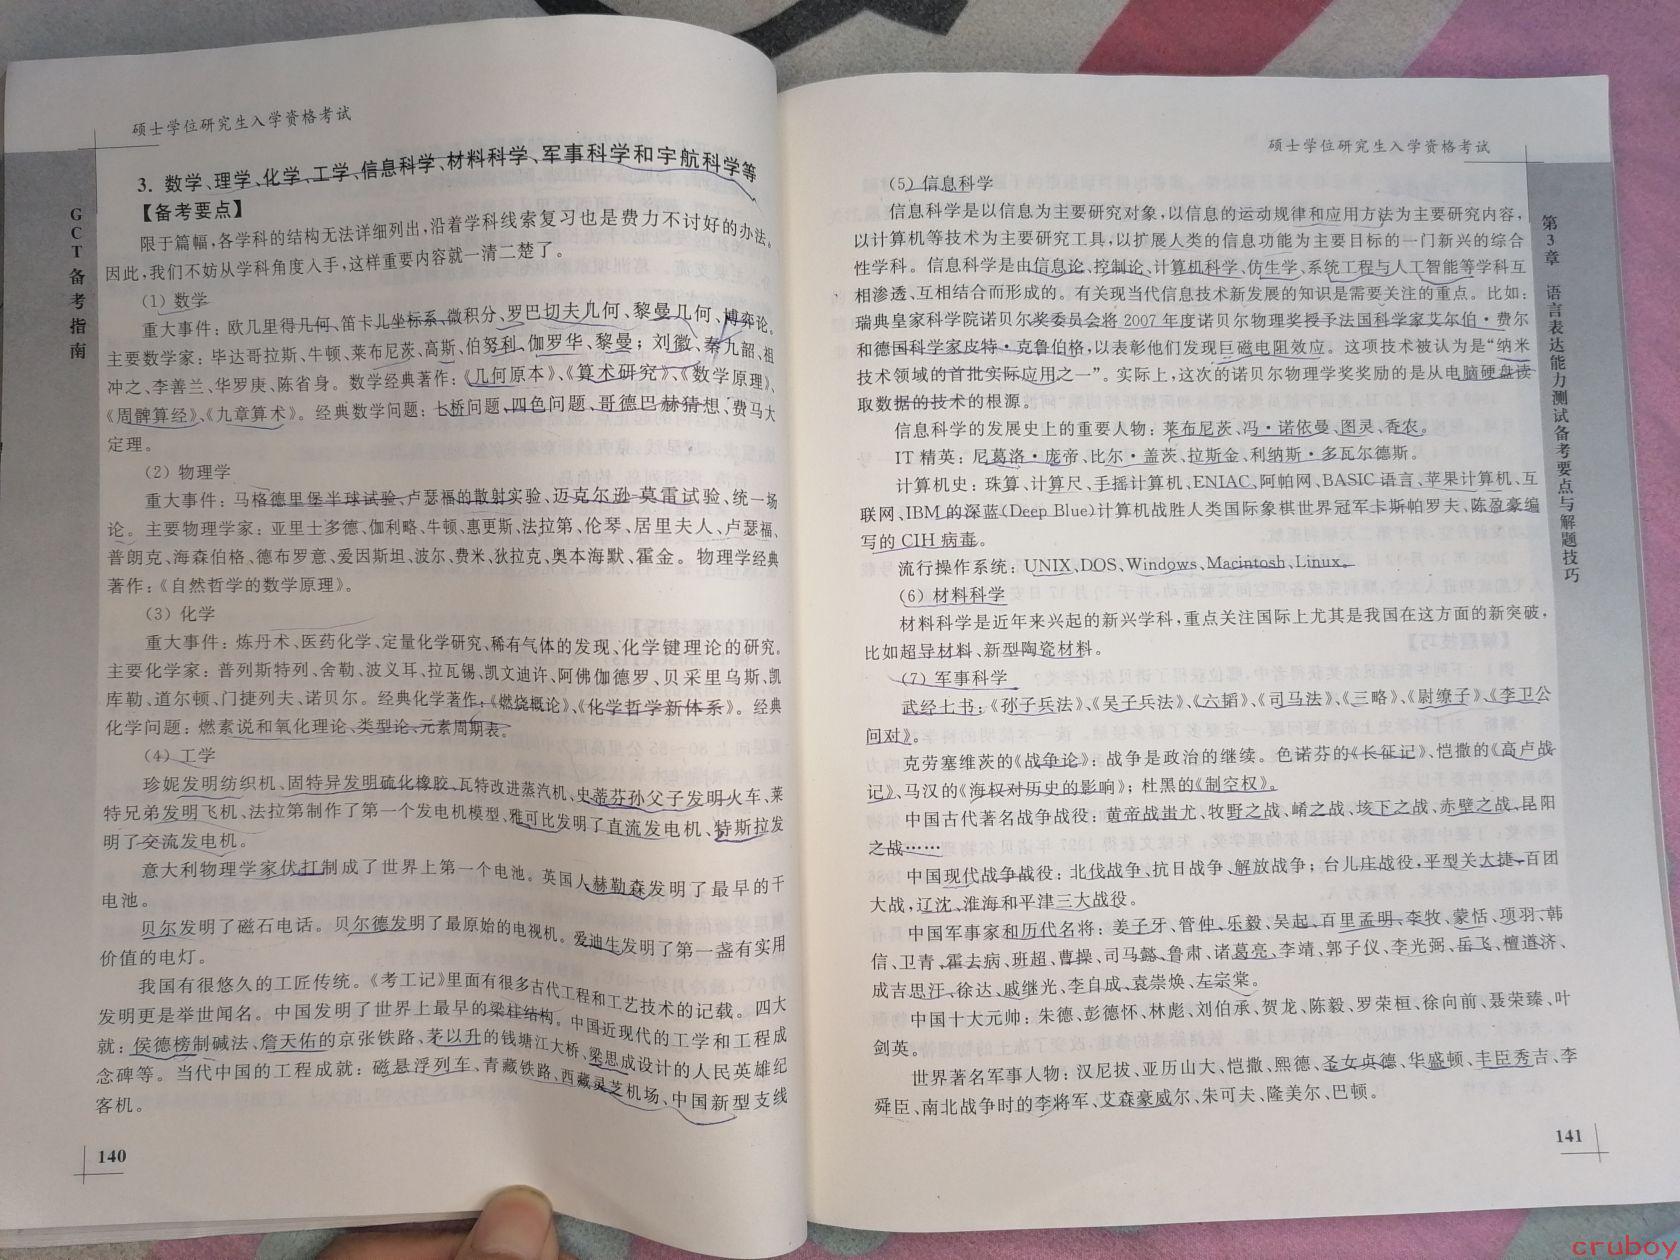 硕士学位研究生入学资格考试
GCT备考指南
3. 数学、理学、化学、工学、信息科学、材料科学、军事科学和宇航科学等
【备考要点】
限于篇幅,各学科的结构无法详细列出,沿着学科线索复习也是费力不讨好的办法。
因此,我们不妨从学科角度入手,这样重要内容就一清二楚了。
(1) 数学
重大事件: 欧几里得几何、笛卡儿坐标系、微积分、罗巴切夫几何、黎曼几何、博弈论。
主要数学家: 毕达哥拉斯、牛顿、莱布尼茨、高斯、伯努利、伽罗华、黎曼; 刘徽、秦九韶、祖
冲之、李善兰、华罗庚、陈省身。数学经典著作:《几何原本》、《算术研究》、《数学原理》、
《周髀算经》、《九章算术》。经典数学问题: 七桥问题、四色问题、哥德巴赫猜想、费马大
定理。
(2) 物理学
重大事件: 马格德里堡半球试验、卢瑟福的散射实验、迈克尔逊-莫雷试验、统一场
论。主要物理学家: 亚里士多德、伽利略、牛顿、惠更斯、法拉第、伦琴、居里夫人、卢瑟福、
普朗克、海森伯格、德布罗意、爱因斯坦、波尔、费米、狄拉克、奥本海默、霍金。物理学经典
著作:《自然哲学的数学原理》。
(3) 化学
重大事件: 炼丹术、医药化学、定量化学研究、稀有气体的发现、化学键理论的研究。
主要化学家: 普列斯特列、舍勒、波义耳、拉瓦锡、凯文迪许、阿佛伽德罗、贝采里乌斯、凯
库勒、道尔顿、门捷列夫、诺贝尔。经典化学著作:《燃烧概论》、《化学哲学新体系》。经典
化学问题: 燃素说和氧化理论、类型论、元素周期表。
(4) 工学
珍妮发明纺织机、固特异发明硫化橡胶、瓦特改进蒸汽机、史蒂芬孙父子发明火车、莱
特兄弟发明飞机、法拉第制作了第一个发电机模型、雅可比发明了直流发电机、特斯拉发
明了交流发电机。
意大利物理学家伏打制成了世界上第一个电池。英国人赫勒森发明了最早的干
电池。
贝尔发明了磁石电话。贝尔德发明了最原始的电视机。爱迪生发明了第一盏有实用
价值的电灯。
我国有很悠久的工匠传统。《考工记》里面有很多古代工程和工艺技术的记载。四大
发明更是举世闻名。中国发明了世界上最早的梁柱结构。中国近现代的工学和工程成
就: 侯德榜制碱法、詹天佑的京张铁路、茅以升的钱塘江大桥、梁思成设计的人民英雄纪
念碑等。当代中国的工程成就: 磁悬浮列车、青藏铁路、西藏灵芝机场、中国新型支线
客机。
140
硕士学位研究生入学资格考试
第3章 语言表达能力测试备考要点与解题技巧
(5) 信息科学
信息科学是以信息为主要研究对象,以信息的运动规律和应用方法为主要研究内容,
以计算机等技术为主要研究工具,以扩展人类的信息功能为主要目标的一门新兴的综合
性学科。信息科学是由信息论、控制论、计算机科学、仿生学、系统工程与人工智能等学科互
相渗透、互相结合而形成的。有关现当代信息技术新发展的知识是需要关注的重点。比如:
瑞典皇家科学院诺贝尔奖委员会将2007年度诺贝尔物理奖授予法国科学家艾尔伯·费尔
和德国科学家皮特·克鲁伯格,以表彰他们发现巨磁电阻效应。这项技术被认为是“纳米
技术领域的首批实际应用之一”。实际上,这次的诺贝尔物理学奖奖励的是从电脑硬盘读
取数据的技术的根源。
信息科学的发展史上的重要人物: 莱布尼茨、冯·诺依曼、图灵、香农。
IT精英: 尼葛洛·庞帝、比尔·盖茨、拉斯金、利纳斯·多瓦尔德斯。
计算机史: 珠算、计算尺、手摇计算机、ENIAC、阿帕网、BASIC语言、苹果计算机、互
联网、IBM的深蓝(Deep Blue)计算机战胜人类国际象棋世界冠军卡斯帕罗夫、陈盈豪编
写的CIH病毒。
流行操作系统: UNIX、DOS、Windows、Macintosh、Linux。
(6) 材料科学
材料科学是近年来兴起的新兴学科,重点关注国际上尤其是我国在这方面的新突破,
比如超导材料、新型陶瓷材料。
(7) 军事科学
武经七书:《孙子兵法》、《吴子兵法》、《六韬》、《司马法》、《三略》、《尉缭子》、《李卫公
问对》。
克劳塞维茨的《战争论》: 战争是政治的继续。色诺芬的《长征记》、恺撒的《高卢战
记》、马汉的《海权对历史的影响》; 杜黑的《制空权》。
中国古代著名战争战役: 黄帝战蚩尤、牧野之战、崤之战、垓下之战、赤壁之战、昆阳
之战……
中国现代战争战役: 北伐战争、抗日战争、解放战争; 台儿庄战役,平型关大捷、百团
大战,辽沈、淮海和平津三大战役。
中国军事家和历代名将: 姜子牙、管仲、乐毅、吴起、百里孟明、李牧、蒙恬、项羽、韩
信、卫青、霍去病、班超、曹操、司马懿、鲁肃、诸葛亮、李靖、郭子仪、李光弼、岳飞、檀道济、
成吉思汗、徐达、戚继光、李自成、袁崇焕、左宗棠。
中国十大元帅: 朱德、彭德怀、林彪、刘伯承、贺龙、陈毅、罗荣桓、徐向前、聂荣臻、叶
剑英。
世界著名军事人物: 汉尼拔、亚历山大、恺撒、熙德、圣女贞德、华盛顿、丰臣秀吉、李
舜臣、南北战争时的李将军、艾森豪威尔、朱可夫、隆美尔、巴顿。
141
cruboy